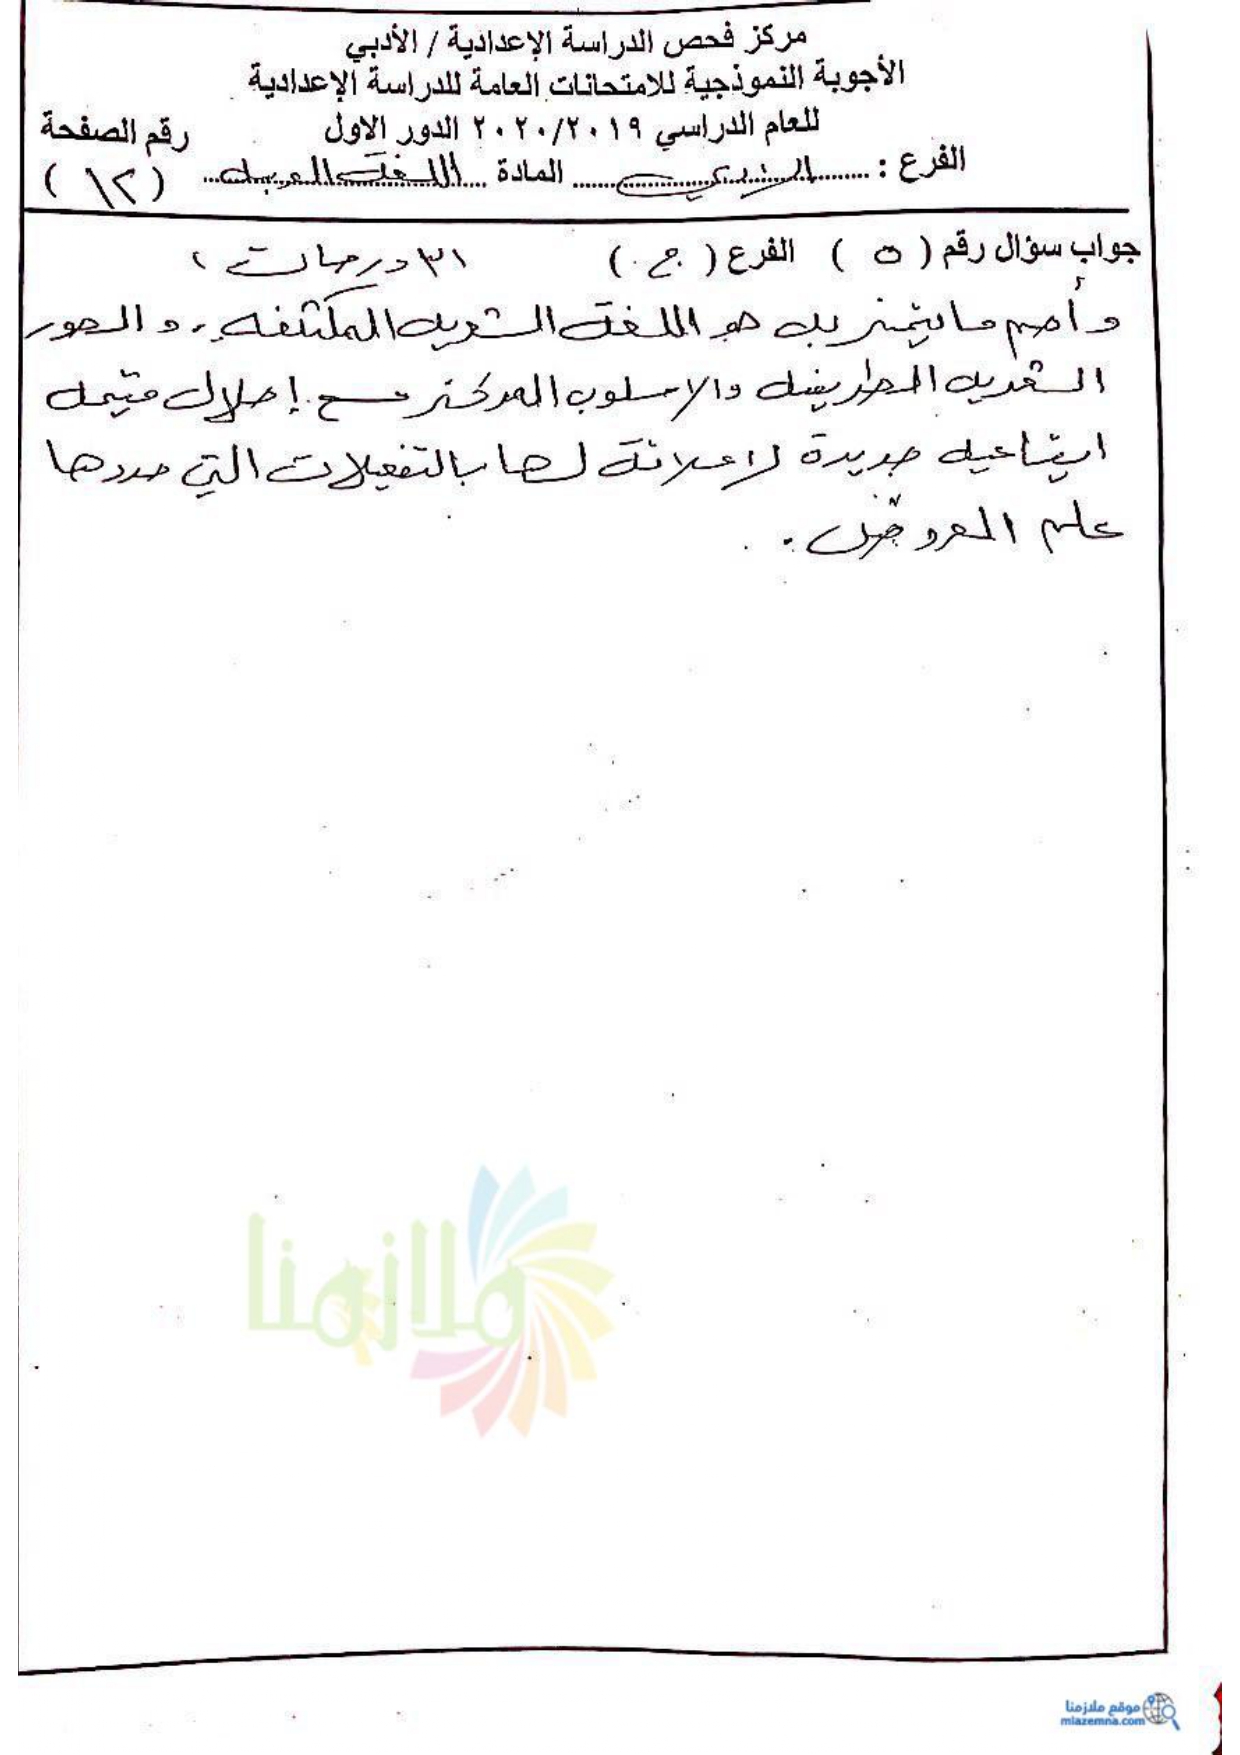 مركز فحص الدراسة الإعدادية / الأدبي
الأجوبة النموذجية للامتحانات العامة للدراسة الإعدادية
للعام الدراسي ٢٠٢٠/٢٠١٩ الدور الاول
رقم الصفحة
الفرع : المادة اللغة العربية (١٢)
جواب سؤال رقم ( ٥ ) الفرع ( ج )
وأهم ما يتميز به هو اللغة الشعرية المكثفة، والصور
الشعرية الطريفة والاسلوب المركز مع إحلال قيمة
ايقاعية جديدة لا علاقة لها بالتفعيلات التي حددها
علم العروض.
ملازمنا
موقع ملازمنا
mlazemna.com